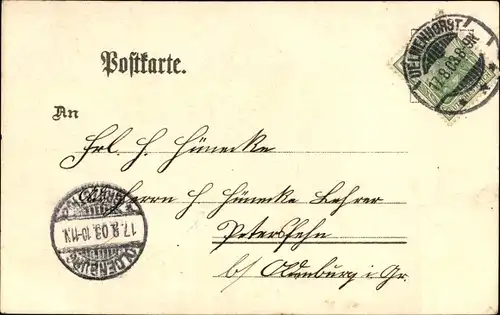 DELMENHORST
17.8.03.8-9N.
* * *
Postkarte.
An
Frl. H. Hünecke
Herrn H Hünecke Lehrer
Petersfehn
b/ Oldenburg i. Gr.
17.8.03.10-11N.
OLDENBURG